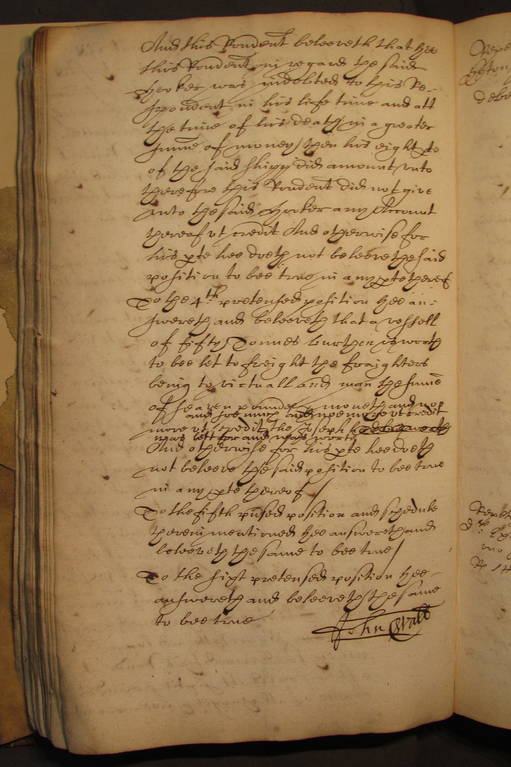 And this Rendent beleeveth that hee
this Rendent in regard the said
Hooker was indebted to this Re-
spondent in his life time and att
the time of his death in a greater
summe of money then his eight pte
of the said shipp did amount unto
therefore this Rendent did not give
unto the said Hooker any Account
thereof vt credit And otherwise for
his pte hee doeth not beleeve the said
position to bee true in any pte thereof
To the 4th pretensed position hee an-
swereth and beleeveth that a vessell
of fifty Tonnes burthen is worth
to bee let to freight the fraighters
being to victuall and man the same
of seaven pounds a moneth and noe
and noe more and noe more vt credit
more vt credit The Joseph
was lett for and was worth
And otherwise for his pte hee doeth
not beleeve the said position to bee true
in any pte thereof /
To the fifth pnsed position and schedule
therein mentioned hee answereth and
beleeveth the same to bee true /
To the sixt pretensed position hee
answereth and beleeveth the same
to bee true
John